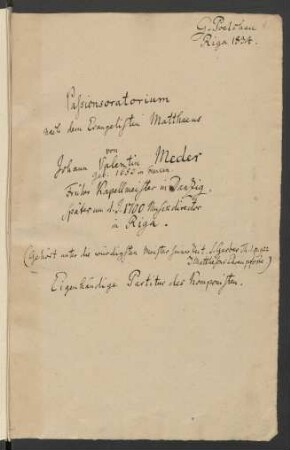 G. Poelchau
Riga 1834.
Passionsoratorium
nach dem Evangelisten Matthaeus
von
Johann Valentin Meder
geb. in
Früher Kapellmeister in Danzig,
später um d. J. 1700 Musikdirector
in Riga.
(Gehört unter die würdigsten Meister seiner Zeit. S. Gerber
Matthesons Ehrenpforte)
Eigenhändige Partitur des Komponisten.